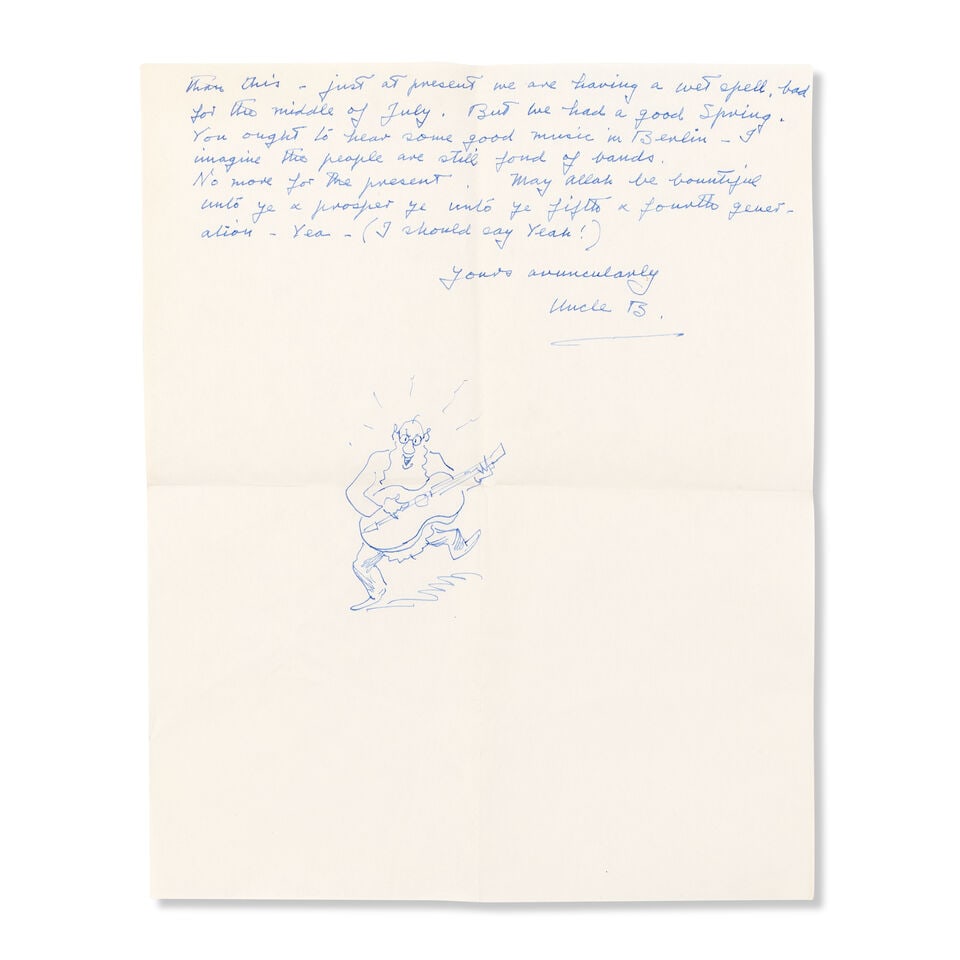 than this - just at present we are having a wet spell, bad
for the middle of July. But we had a good Spring.
You ought to hear some good music in Berlin - I
imagine the people are still fond of bands.
No more for the present. May Allah be bountiful
unto ye & prosper ye unto ye fifth & fourth gener-
ation - Yea - (I should say Yeah!)
Yours avuncularly
Uncle B.